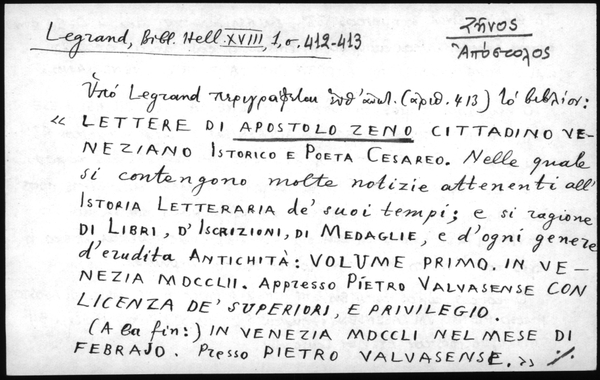 Legrand, Bibl. Hell. XVIII, 1, σ. 412-413
Ζῆνος
Ἀπόστολος
Ὑπό Legrand περιγράφεται (ἀριθ. 413) τό βιβλίον:
« LETTERE DI APOSTOLO ZENO CITTADINO VE-
NEZIANO ISTORICO E POETA CESAREO. Nelle quale
si contengono molte notizie attenenti all'
ISTORIA LETTERARIA de' suoi tempi; e si ragione
DI LIBRI, D'ISCRIZIONI, DI MEDAGLIE, e d'ogni genere
d'erudita ANTICHITÀ: VOLUME PRIMO. IN VE-
NEZIA MDCCLII. Appresso PIETRO VALVASENSE CON
LICENZA DE' SUPERIORI, E PRIVILEGIO.
(A la fin:) IN VENEZIA MDCCLI NEL MESE DI
FEBRAJO. Presso PIETRO VALVASENSE. » ./.